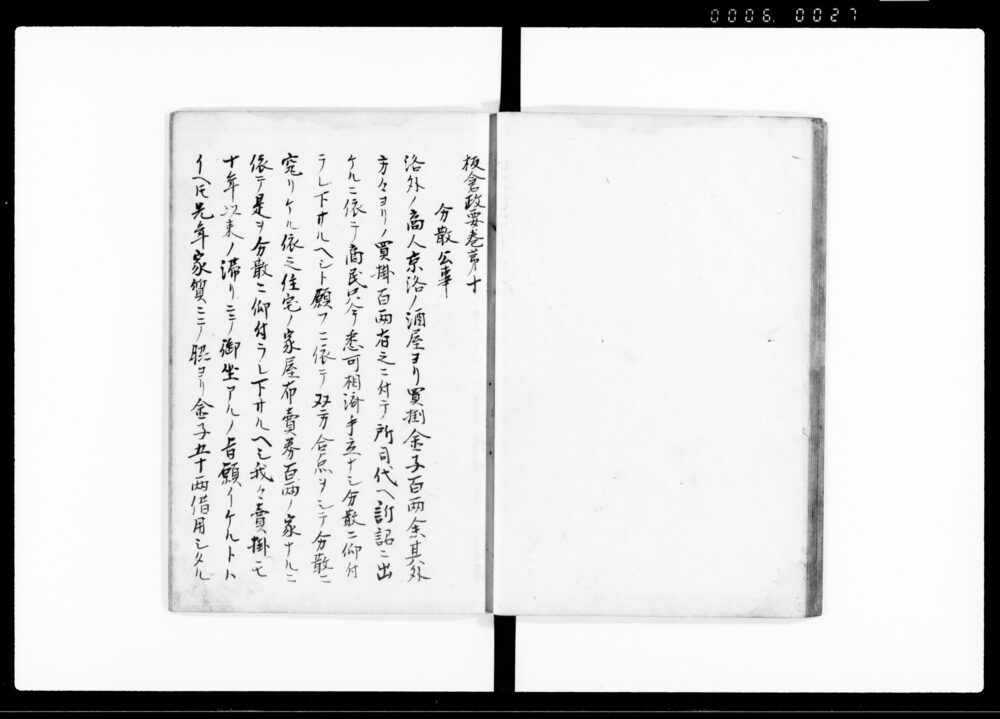 0006. 0027
板倉政要巻第十
分散公事
洛外ノ商人京洛ノ酒屋ヨリ買掛金子百両余其外
方々ヨリノ買掛百両有之ニ付テ所司代ヘ訴詔ニ出
ケルニ依テ商民只今悉可相済手立ナシ分散ニ仰付
ラレ下サルヘシト願フニ依テ双方合点ヲシテ分散ニ
究リケル依之住宅ノ家屋布賣券百両ノ家ナルニ
依テ是ヲ分散ニ仰付ラレ下サルヘシ我々賣掛モ
十年以来ノ滞リニテ御坐アルノ旨願イケルトハ
イヘ𪜈先年家質ニテ脇ヨリ金子五十両借用シタル